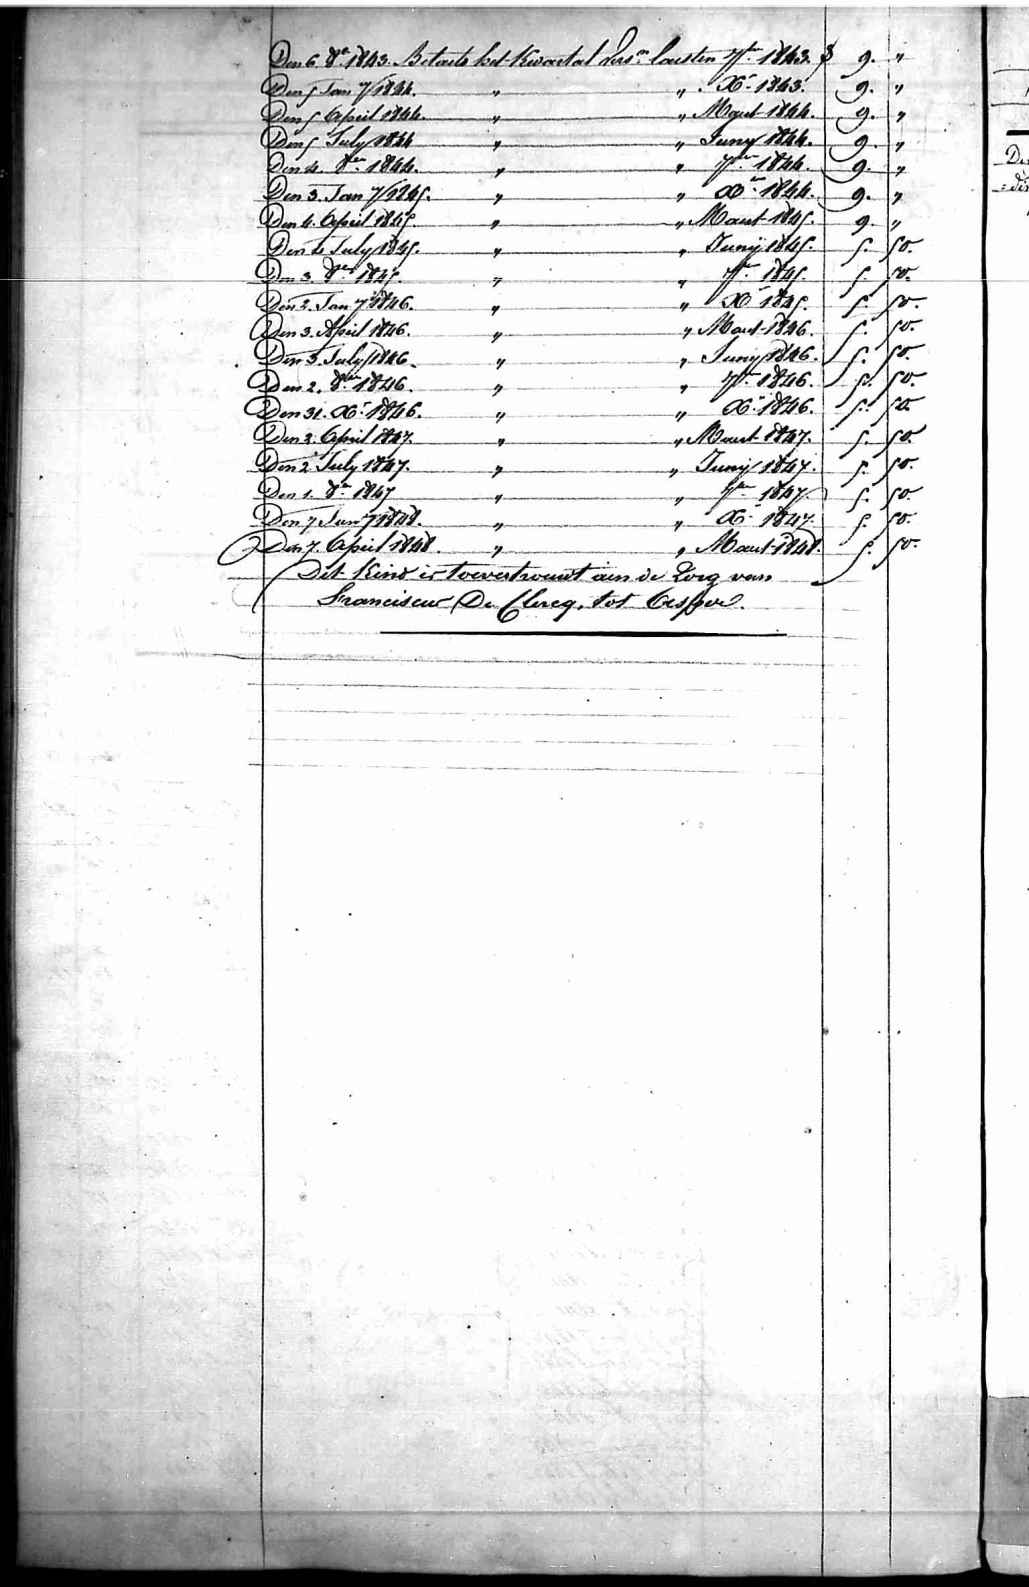 Den 6. 8er 1843. Betaele het Kwartal vers.en laesten 7ber 1843. 9. "
Den 5 Jan 7/1844. " " Xr 1843. 9. "
Den 5 April 1844. " " Maert 1844. 9. "
Den 5 July 1844 " " Juny 1844. 9. "
Den 4. 8er 1844. " " 7er 1844. 9. "
Den 3. Jan 7/1845. " " Xer 1844. 9. "
Den 4. April 1845 " " Maert 1845. 9. "
Den 4 July 1845. " " Juny 1845. 5. 50.
Den 3. 8er 1845. " " 7er 1845. 5. 50.
Den 2. Jan 7 1846. " " Xr 1845. 5. 50.
Den 3. April 1846. " " Maert 1846. 5. 50.
Den 3. July 1846. " " Juny 1846. 5. 50.
Den 2. 8er 1846. " " 7er 1846. 5. 50.
Den 31. Xr 1846. " " Xr 1846. 5. 50.
Den 2. April 1847. " " Maert 1847. 5. 50.
Den 2 July 1847. " " Juny 1847. 5. 50.
Den 1. 8er 1847 " " 7er 1847. 5. 50
Den 7 Jan 7 1848. " " Xr 1847. 5. 50.
Den 7. April 1848. " " Maert 1848. 5. 50.
Dit Kind is toevertrouwt aen de Zorg van
Franciscus De Clercq, tot